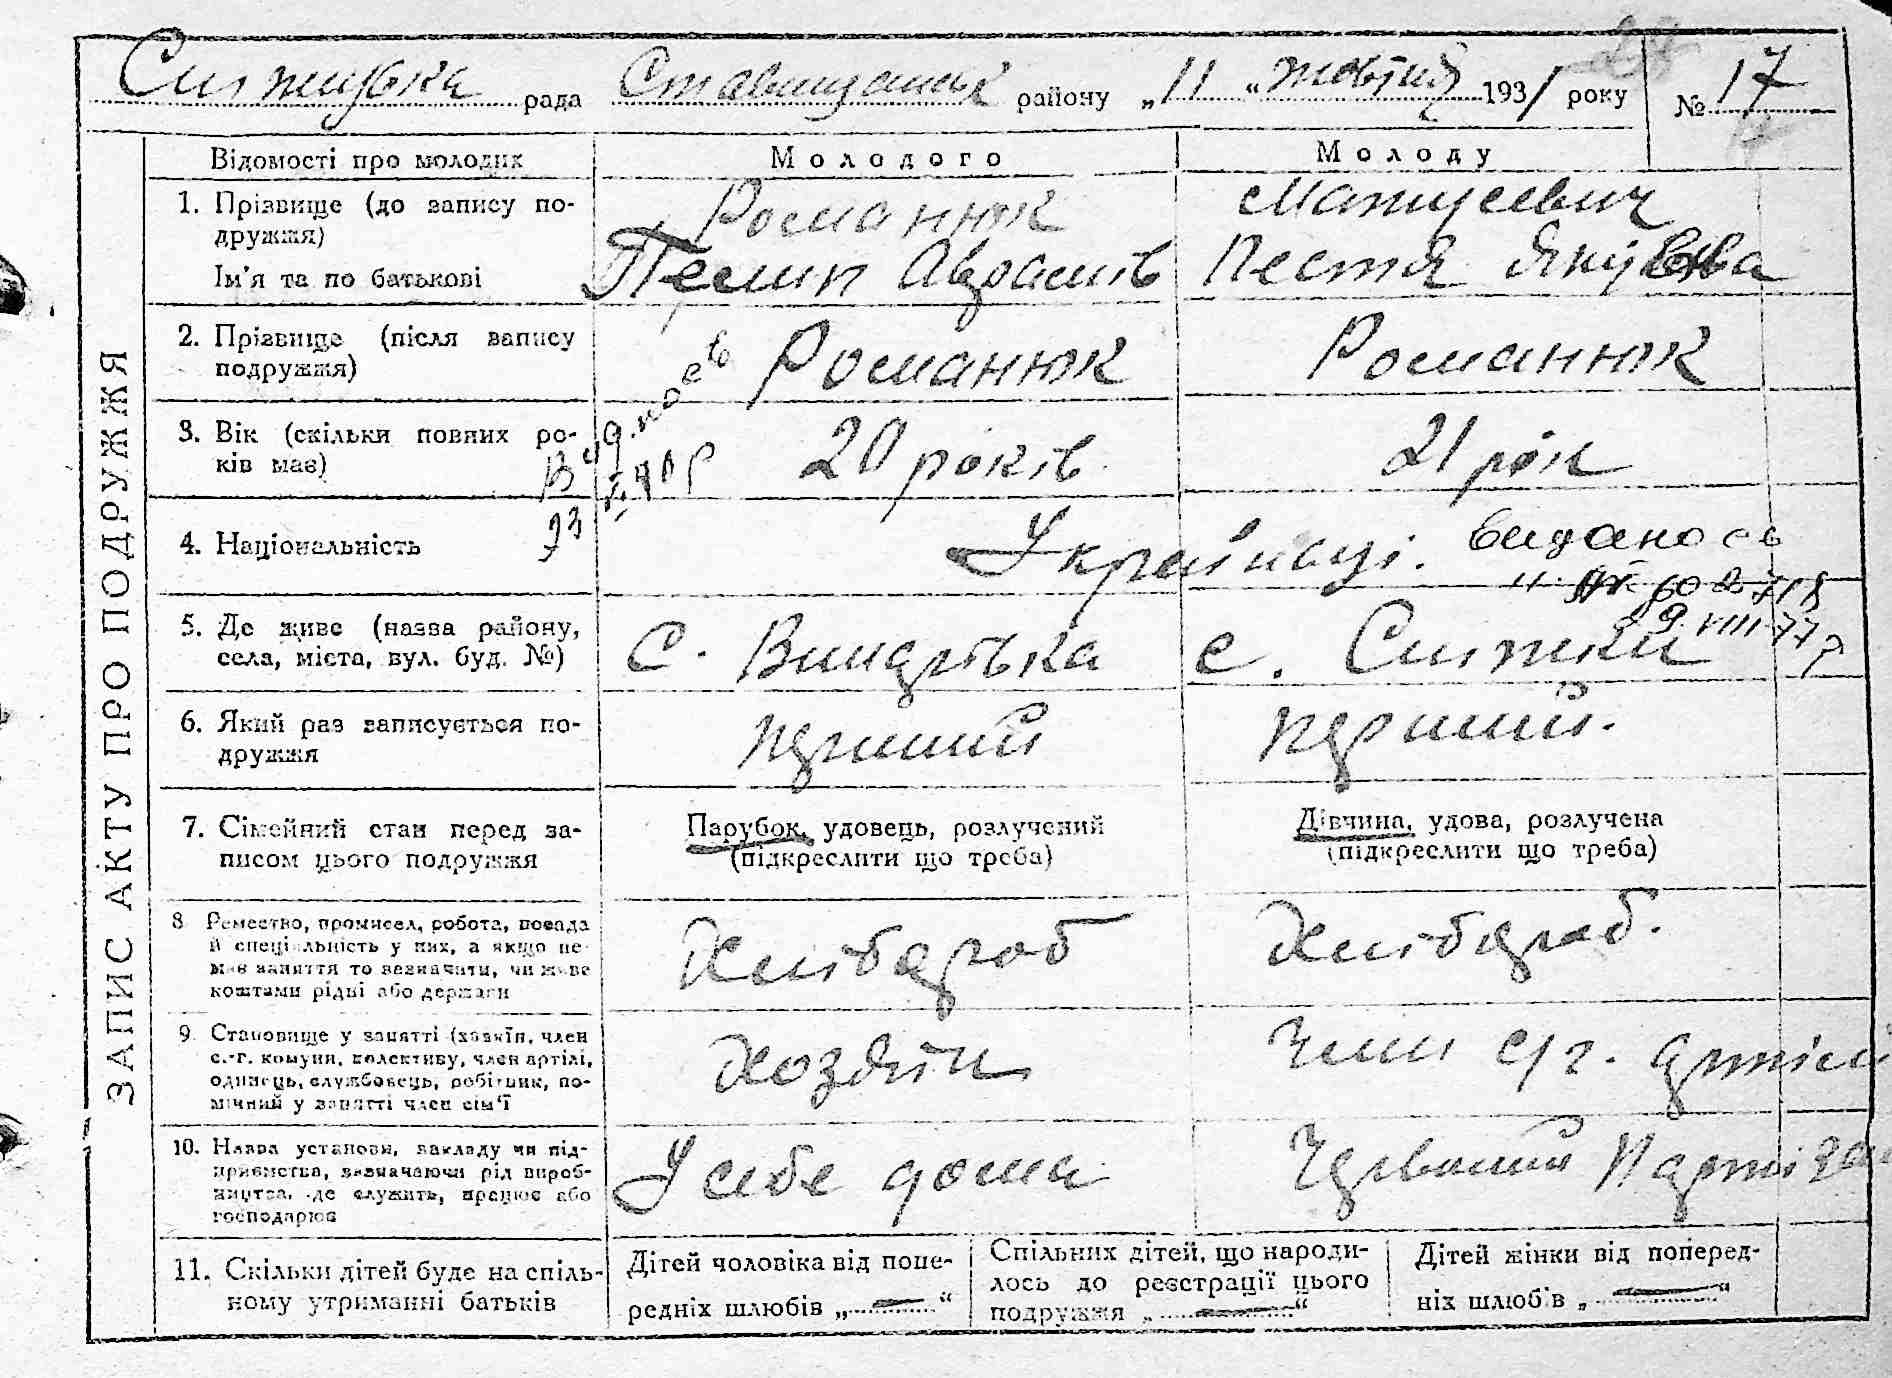 рада Ставищанськ району „11" жовтня 1931 року № 17
ЗАПИС АКТУ ПРО ПОДРУЖЖЯ
Відомості про молодих
Молодого
Молоду
1. Прізвище (до запису по-
дружжя)
Ім'я та по батькові
Романюк
Пелип Аврамів
Матусевич
Пестя Якувна
2. Прізвище (після запису
подружжя)
Романюк
Романюк
3. Вік (скільки повних ро-
ків має)
20 років
21 рік
4. Національність
Українці.
видано св
5. Де живе (назва району,
села, міста, вул. буд. №)
С. Винарівка
с.
9.VIII-77 р
6. Який раз записується по-
дружжя
перший
перший.
7. Сімейний стан перед за-
писом цього подружжя
Парубок, удовець, розлучений
(підкреслити що треба)
Дівчина, удова, розлучена
(підкреслити що треба)
8. Ремество, промисел, робота, посада
й спеціальність у них, а якщо не
має заняття то зазначити, чи живе
коштами рідні або держави
Хлібароб
Хлібароб.
9. Становище у занятті (хазяїн, член
с.-г. комуни, колективу, член артілі,
одинець, службовець, робітник, по-
мічний у занятті член сім'ї
Хозяїн
Член с/г. артілі
10. Назва установи, закладу чи під-
приємства, зазначаючи рід вироб-
ництва, де служить, працює або
господарює
У себе дома
Червоний Партизан
11. Скільки дітей буде на спіль-
ному утриманні батьків
Дітей чоловіка від попе-
редніх шлюбів „—"
Спільних дітей, що народи-
лось до реєстрації цього
подружжя „—"
Дітей жінки від поперед-
ніх шлюбів „—"